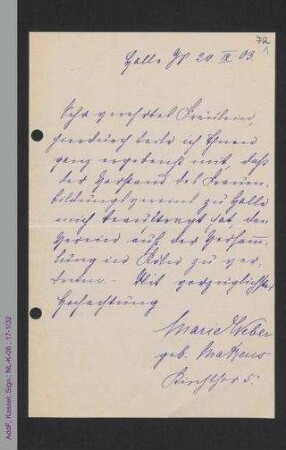 72
1
Halle a/S 20 IX 03.
Sehr verehrtes Fräulein,
hierdurch teile ich Ihnen
ganz ergebenst mit, daß
der Vorstand des Frauen-
bildungsvereins zu Halle
mich beauftragt hat den
Verein auf der Versamm-
lung in Köln zu ver-
treten. - Mit vorzüglichster
Hochachtung
Marie Weber
geb.
Kirchthor 5.
AddF, Kassel, Sign.: NL-K-08 ; 17-1/32